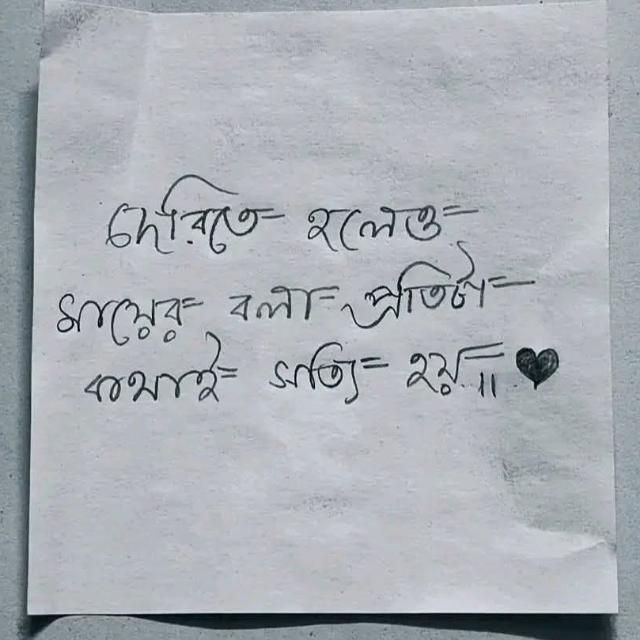 দেরিতে হলেও
মায়ের বলা প্রতিটা
কথাই সত্যি হয়..॥ 🖤